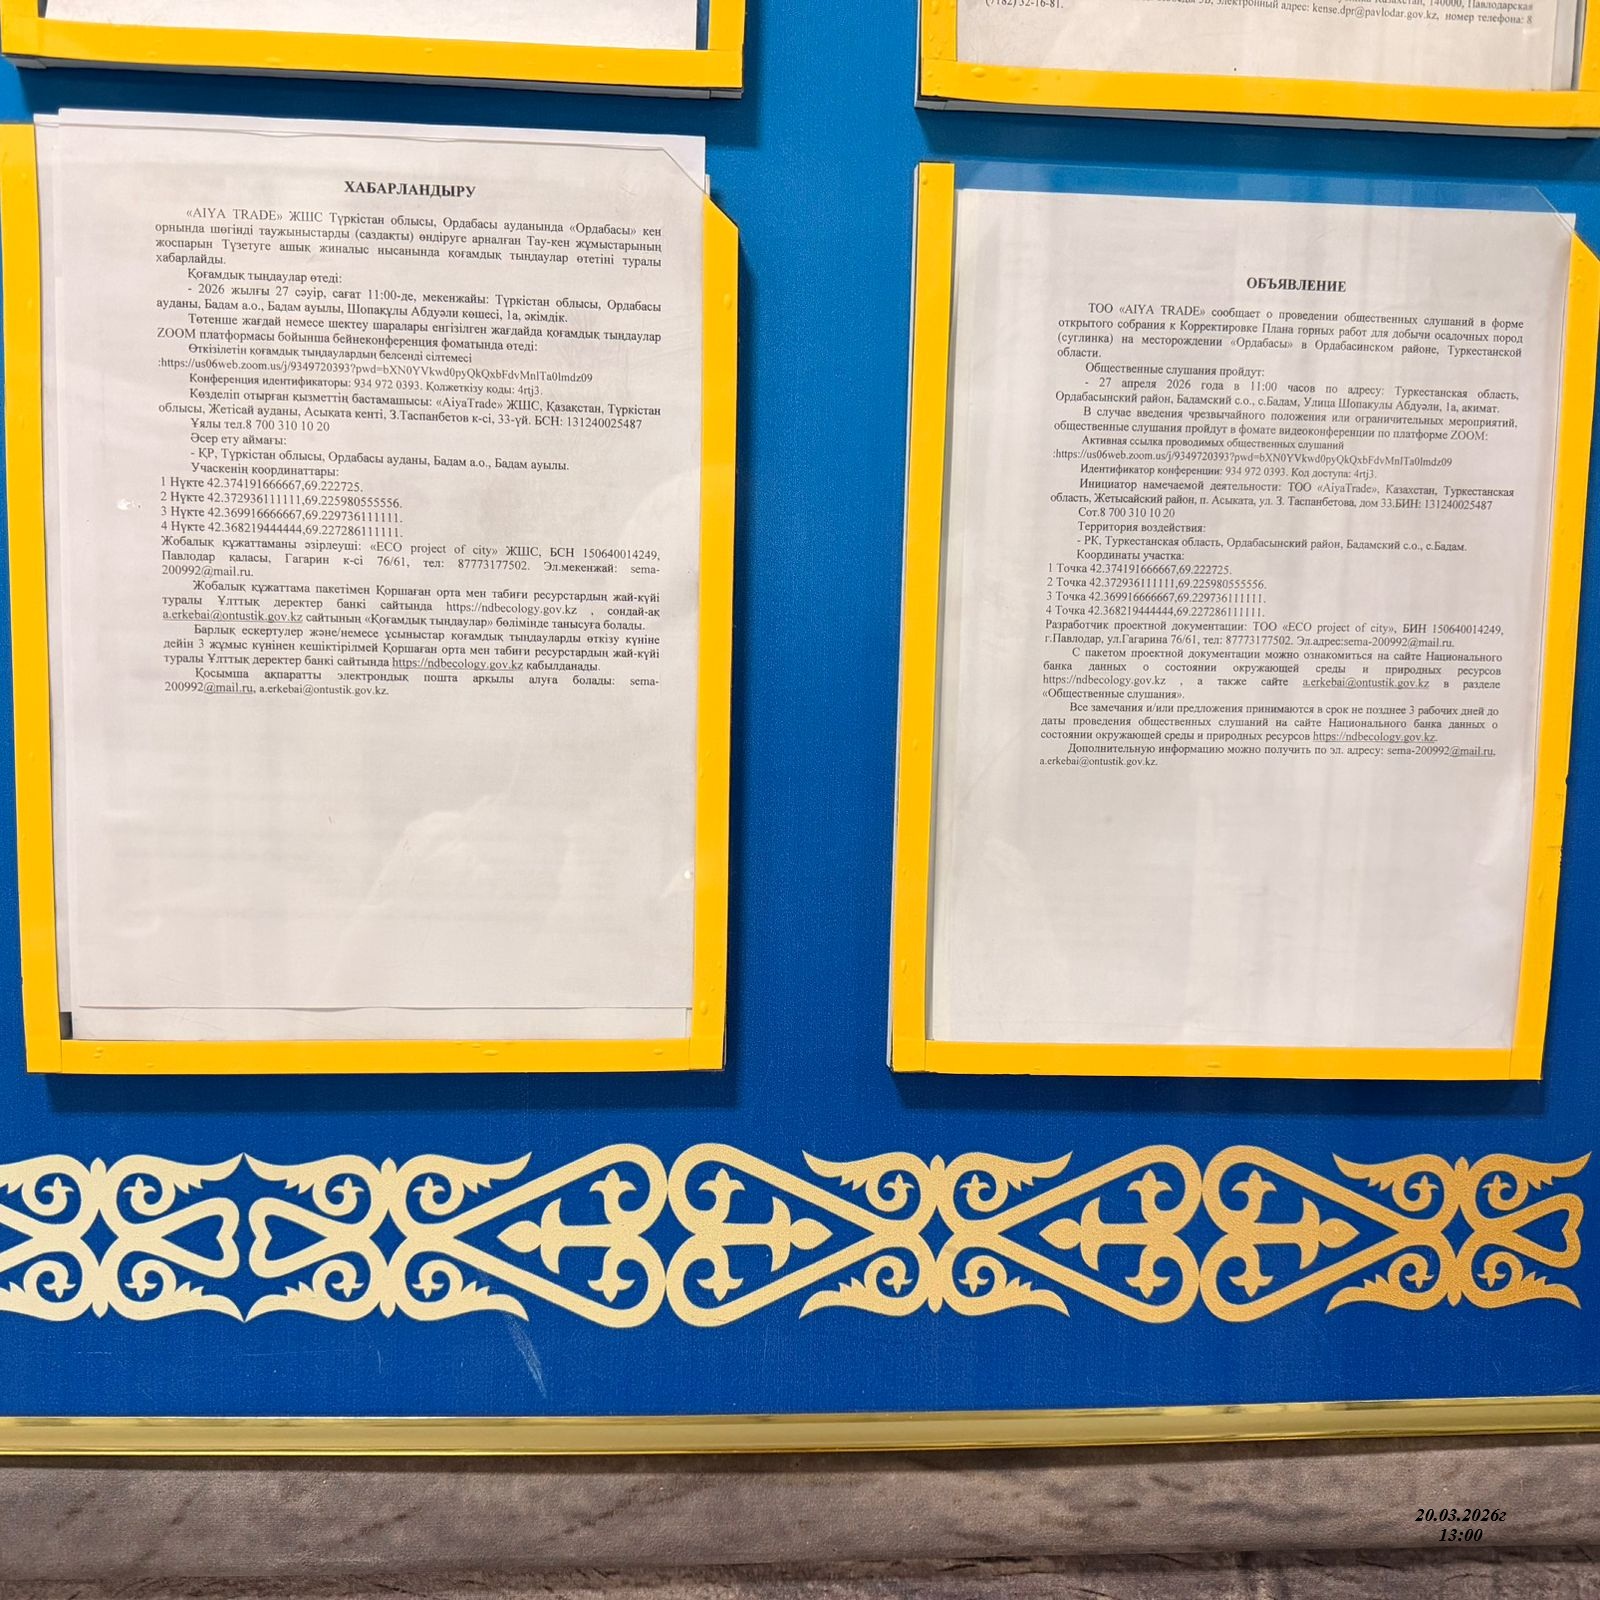 140000, Павлодарская
электронный адрес: kense.dpr@pavlodar.gov.kz, номер телефона: 8
(7182) 32-16-81.
ХАБАРЛАНДЫРУ
«AIYA TRADE» ЖШС Түркістан облысы, Ордабасы ауданында «Ордабасы» кен
орнында шөгінді таужыныстарды (саздақты) өндіруге арналған Тау-кен жұмыстарының
жоспарын Түзетуге ашық жиналыс нысанында қоғамдық тыңдаулар өтетіні туралы
хабарлайды.
Қоғамдық тыңдаулар өтеді:
- 2026 жылғы 27 сәуір, сағат 11:00-де, мекенжайы: Түркістан облысы, Ордабасы
ауданы, Бадам а.о., Бадам ауылы, Шопақұлы Абдуәли көшесі, 1а, әкімдік.
Төтенше жағдай немесе шектеу шаралары енгізілген жағдайда қоғамдық тыңдаулар
ZOOM платформасы бойынша бейнеконференция форматында өтеді:
Өткізілетін қоғамдық тыңдаулардың белсенді сілтемесі
:https://us06web.zoom.us/j/9349720393?pwd=bXN0YVkwd0pyQkQxbFdvMnlTa0lmdz09
Конференция идентификаторы: 934 972 0393. Қолжеткізу коды: 4rtj3.
Көзделіп отырған қызметтің бастамашысы: «AiyaTrade» ЖШС, Қазақстан, Түркістан
облысы, Жетісай ауданы, Асықата кенті, З.Таспанбетов к-сі, 33-үй. БСН: 131240025487
Ұялы тел.8 700 310 10 20
Әсер ету аймағы:
- ҚР, Түркістан облысы, Ордабасы ауданы, Бадам а.о., Бадам ауылы.
Учаскенің координаттары:
1 Нүкте 42.374191666667,69.222725.
2 Нүкте 42.372936111111,69.225980555556.
3 Нүкте 42.369916666667,69.229736111111.
4 Нүкте 42.368219444444,69.227286111111.
Жобалық құжаттаманы әзірлеуші: «ECO project of city» ЖШС, БСН 150640014249,
Павлодар қаласы, Гагарин к-сі 76/61, тел: 87773177502. Эл.мекенжай: sema-
200992@mail.ru.
Жобалық құжаттама пакетімен Қоршаған орта мен табиғи ресурстардың жай-күйі
туралы Ұлттық деректер банкі сайтында https://ndbecology.gov.kz , сондай-ақ
a.erkebai@ontustik.gov.kz сайтының «Қоғамдық тыңдаулар» бөлімінде танысуға болады.
Барлық ескертулер және/немесе ұсыныстар қоғамдық тыңдауларды өткізу күніне
дейін 3 жұмыс күнінен кешіктірілмей Қоршаған орта мен табиғи ресурстардың жай-күйі
туралы Ұлттық деректер банкі сайтында https://ndbecology.gov.kz қабылданады.
Қосымша ақпаратты электрондық пошта арқылы алуға болады: sema-
200992@mail.ru, a.erkebai@ontustik.gov.kz.
ОБЪЯВЛЕНИЕ
ТОО «AIYA TRADE» сообщает о проведении общественных слушаний в форме
открытого собрания к Корректировке Плана горных работ для добычи осадочных пород
(суглинка) на месторождении «Ордабасы» в Ордабасинском районе, Туркестанской
области.
Общественные слушания пройдут:
- 27 апреля 2026 года в 11:00 часов по адресу: Туркестанская область,
Ордабасынский район, Бадамский с.о., с.Бадам, Улица Шопакулы Абдуәли, 1а, акимат.
В случае введения чрезвычайного положения или ограничительных мероприятий,
общественные слушания пройдут в фомате видеоконференции по платформе ZOOM:
Активная ссылка проводимых общественных слушаний
:https://us06web.zoom.us/j/9349720393?pwd=bXN0YVkwd0pyQkQxbFdvMnlTa0lmdz09
Идентификатор конференции: 934 972 0393. Код доступа: 4rtj3.
Инициатор намечаемой деятельности: ТОО «AiyaTrade», Казахстан, Туркестанская
область, Жетысайский район, п. Асыката, ул. З. Таспанбетова, дом 33.БИН: 131240025487
Сот.8 700 310 10 20
Территория воздействия:
- РК, Туркестанская область, Ордабасынский район, Бадамский с.о., с.Бадам.
Координаты участка:
1 Точка 42.374191666667,69.222725.
2 Точка 42.372936111111,69.225980555556.
3 Точка 42.369916666667,69.229736111111.
4 Точка 42.368219444444,69.227286111111.
Разработчик проектной документации: ТОО «ECO project of city», БИН 150640014249,
г.Павлодар, ул.Гагарина 76/61, тел: 87773177502. Эл.адрес:sema-200992@mail.ru.
С пакетом проектной документации можно ознакомиться на сайте Национального
банка данных о состоянии окружающей среды и природных ресурсов
https://ndbecology.gov.kz , а также сайте a.erkebai@ontustik.gov.kz в разделе
«Общественные слушания».
Все замечания и/или предложения принимаются в срок не позднее 3 рабочих дней до
даты проведения общественных слушаний на сайте Национального банка данных о
состоянии окружающей среды и природных ресурсов https://ndbecology.gov.kz.
Дополнительную информацию можно получить по эл. адресу: sema-200992@mail.ru,
a.erkebai@ontustik.gov.kz.
20.03.2026г
13:00